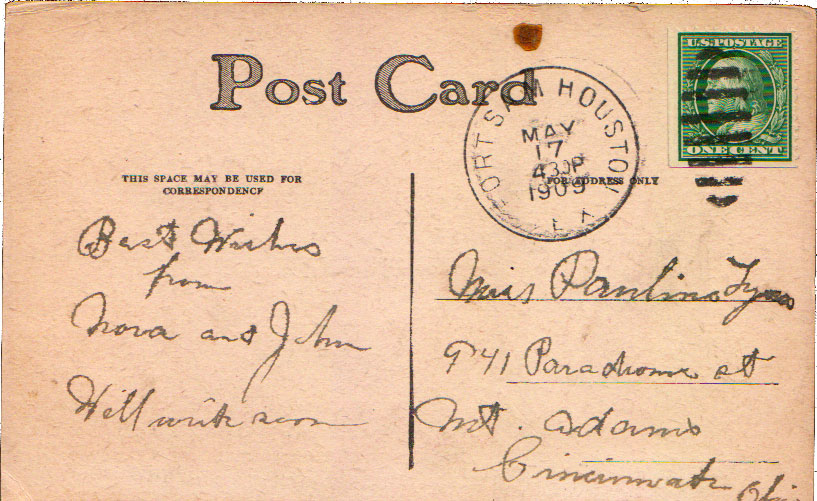 Post Card
FORT SAM HOUSTON
MAY
17
430P
1909
TEX
U.S. POSTAGE
ONE CENT
THIS SPACE MAY BE USED FOR
CORRESPONDENCE
FOR ADDRESS ONLY
Best Wishes
from
Nova and John
Will write soon
Miss Pauline
941 st
Mt. Adams
Cincinnati Ohio